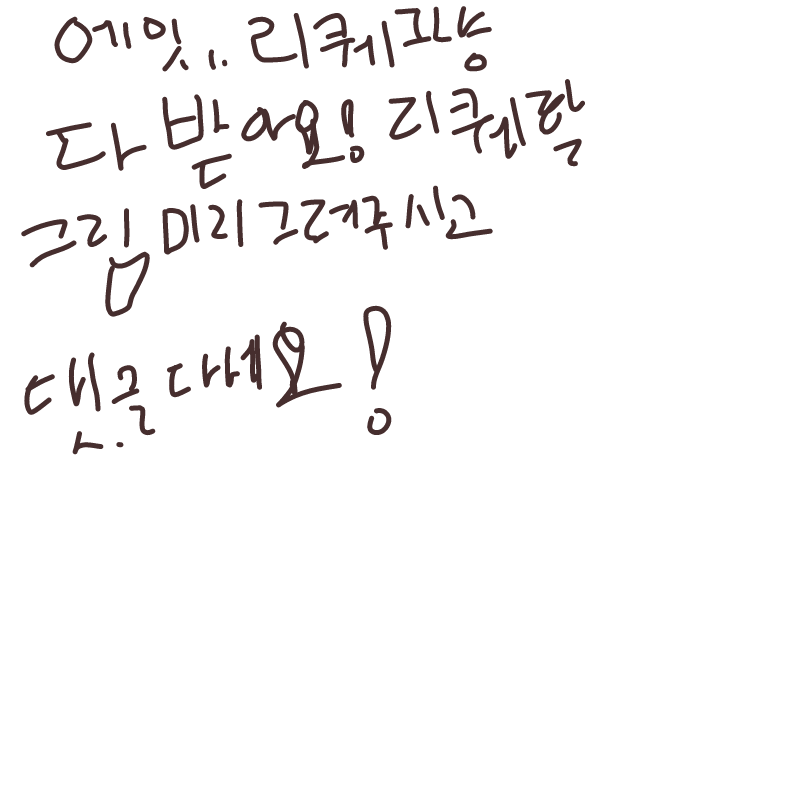 에잇.. 리퀘 그냥
다 받아요! 리퀘랑
그림 미리 그려주시고
댓글 다세요!